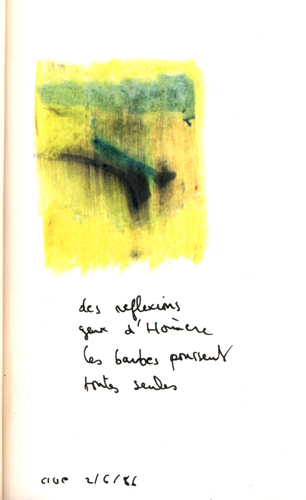 des reflexions
genre d'Homère
les barbes poussent
toutes seules
2/6/86